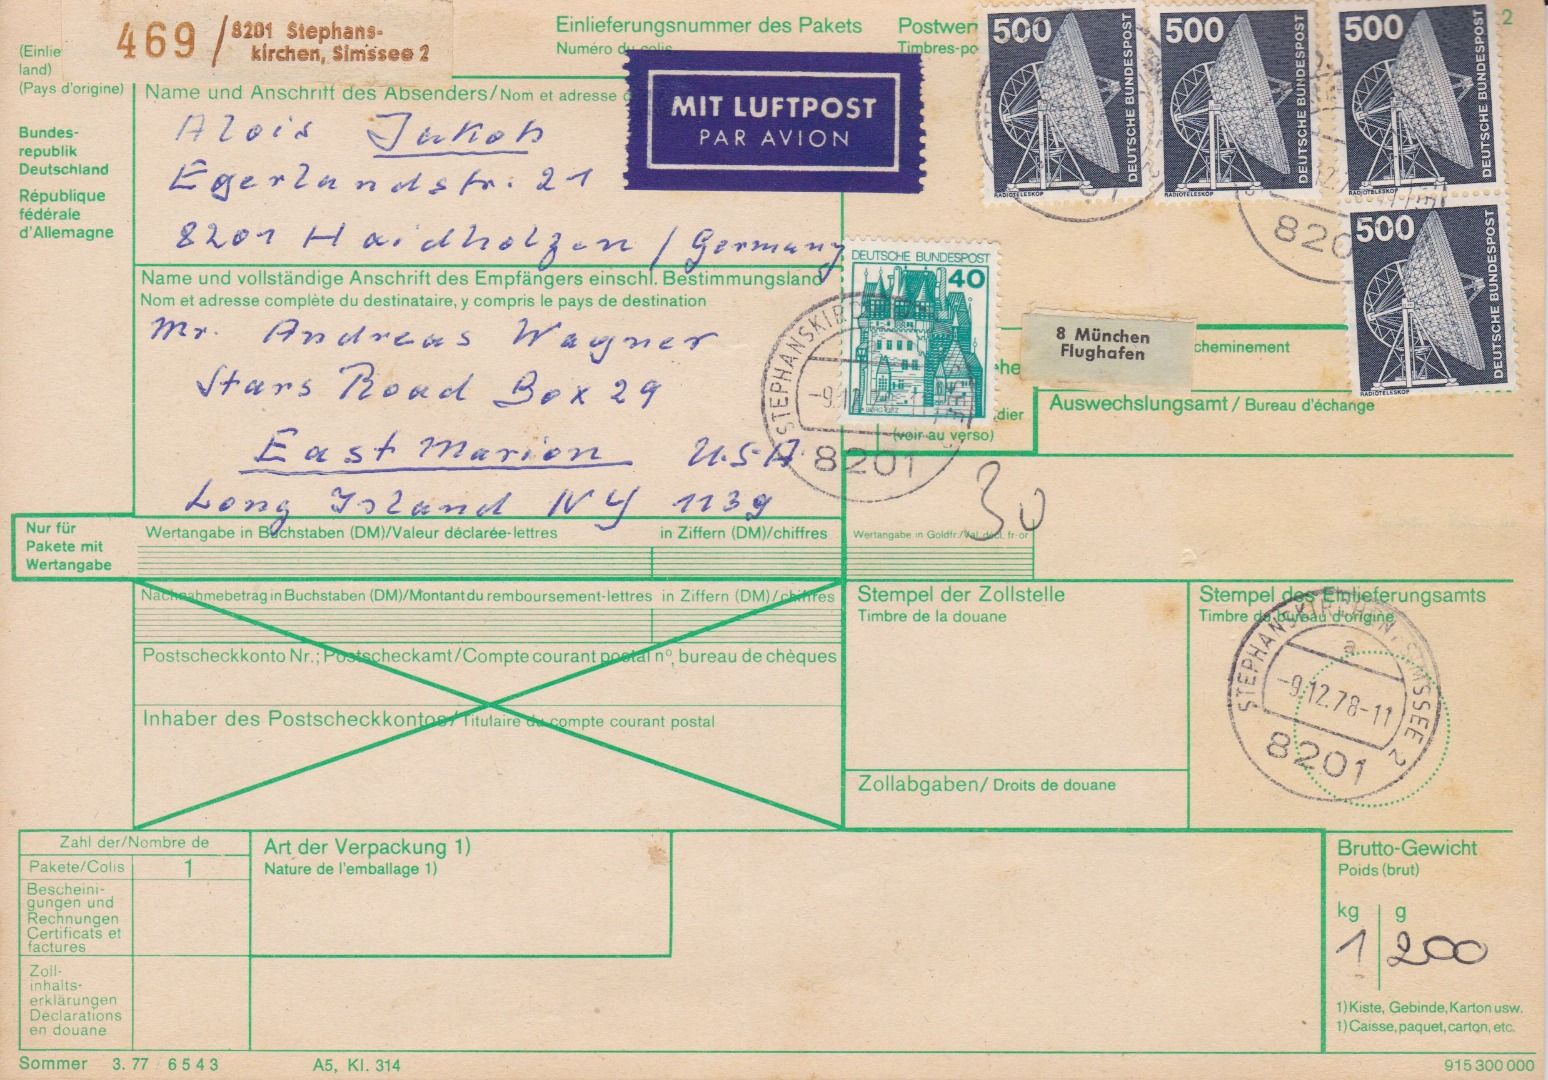 469 / 8201 Stephans-
kirchen, Simssee 2
Einlieferungsnummer des Pakets
Numéro du colis
Postwer
Timbres-po
2
(Einlie
land)
(Pays d'origine)
Bundes-
republik
Deutschland
République
fédérale
d'Allemagne
Name und Anschrift des Absenders/Nom et adresse d
Alois Jakob
Egerlandstr. 21
8201 Haidholzen / Germany
MIT LUFTPOST
PAR AVION
500
DEUTSCHE BUNDESPOST
RADIOTELESKOP
500
DEUTSCHE BUNDESPOST
RADIOTELESKOP
500
DEUTSCHE BUNDESPOST
RADIOTELESKOP
500
DEUTSCHE BUNDESPOST
RADIOTELESKOP
820
DEUTSCHE BUNDESPOST
40
BURG ELTZ
STEPHANSKIRCH
-9.12.7
8201
Name und vollständige Anschrift des Empfängers einschl. Bestimmungsland
Nom et adresse complète du destinataire, y compris le pays de destination
Mr. Andreas Wagner
Stars Road Box 29
East Marion U.S.A.
Long Island NY 1139
8 München
Flughafen
cheminement
ehe
dier
(voir au verso)
Auswechslungsamt / Bureau d'échange
30
Nur für
Pakete mit
Wertangabe
Wertangabe in Buchstaben (DM)/Valeur déclarée-lettres
in Ziffern (DM)/chiffres
Wertangabe in Goldfr./Val. décl. fr-or
Nachnahmebetrag in Buchstaben (DM)/Montant du remboursement-lettres
in Ziffern (DM)/chiffres
Postscheckkonto Nr.; Postscheckamt/Compte courant postal nº, bureau de chèques
Inhaber des Postscheckkontos/Titulaire du compte courant postal
Stempel der Zollstelle
Timbre de la douane
Stempel des Einlieferungsamts
Timbre du bureau d'origine
STEPHANSKIRCHEN, SIMSSEE 2
a
-9.12.78-11
8201
Zollabgaben/ Droits de douane
Zahl der/Nombre de
Pakete/Colis
1
Bescheini-
gungen und
Rechnungen
Certificats et
factures
Zoll-
inhalts-
erklärungen
Déclarations
en douane
Art der Verpackung 1)
Nature de l'emballage 1)
Brutto-Gewicht
Poids (brut)
kg g
1 200
1) Kiste, Gebinde, Karton usw.
1) Caisse, paquet, carton, etc.
Sommer 3. 77 6 5 4 3
A5, Kl. 314
915 300 000